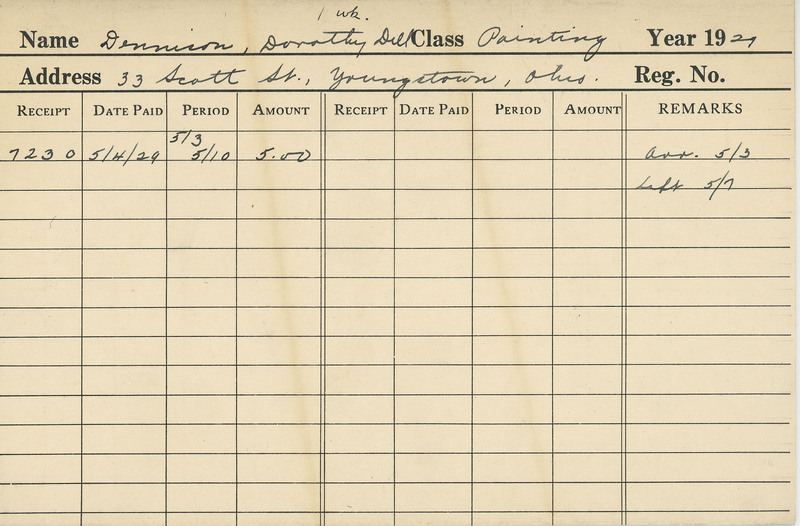 1 wk.
Name Dennison, Dorothy Dell Class Painting Year 1929
Address 33 Scott St., Youngstown, Ohio. Reg. No.
RECEIPT DATE PAID PERIOD AMOUNT RECEIPT DATE PAID PERIOD AMOUNT REMARKS
5/3
7230 5/4/29 5/10 5.00 Arr. 5/3
Left 5/7